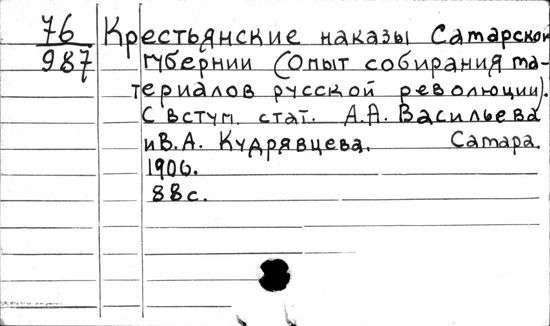 76
987
Крестьянские наказы Самарской
губернии (Опыт собирания ма-
териалов русской революции).
С вступ. стат. А.А. Васильева
и В.А. Кудрявцева. Самара.
1906.
88 с.